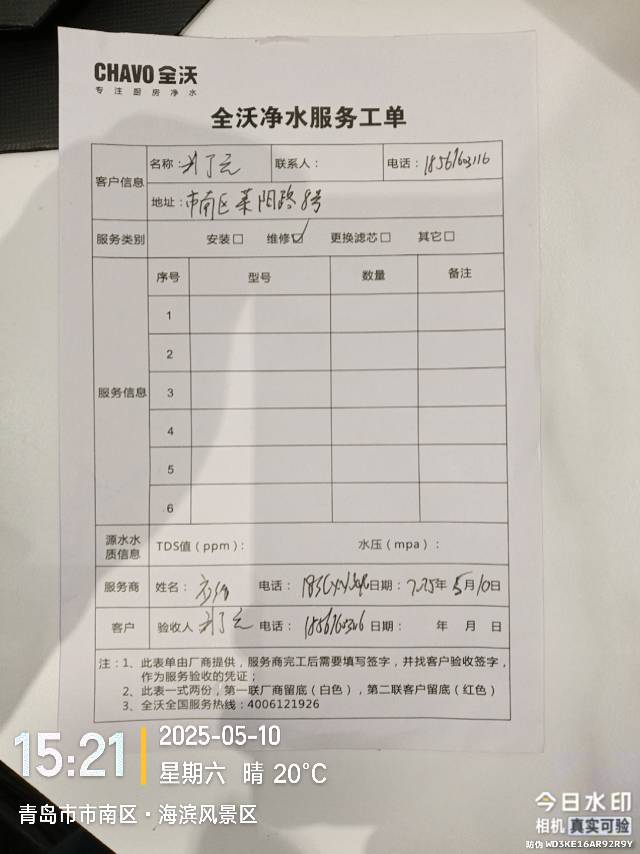 CHAVO 全沃
专注厨房净水
全沃净水服务工单
客户信息 名称： 联系人： 电话：
地址：市南区莱阳路8号
服务类别 安装□ 维修☑ 更换滤芯□ 其它□
服务信息 序号 型号 数量 备注
1
2
3
4
5
6
源水水质信息 TDS值（ppm）： 水压（mpa）：
服务商 姓名： 电话： 日期： 年5月10日
客户 验收人 电话： 日期： 年 月 日
注：1、此表单由厂商提供，服务商完工后需要填写签字，并找客户验收签字，
作为服务验收的凭证；
2、此表一式两份，第一联厂商留底（白色），第二联客户留底（红色）
3、全沃全国服务热线：4006121926
15:21 2025-05-10
星期六 晴 20℃
青岛市市南区·海滨风景区
今日水印
相机 真实可验
防伪 WD3KE16AR92R9Y